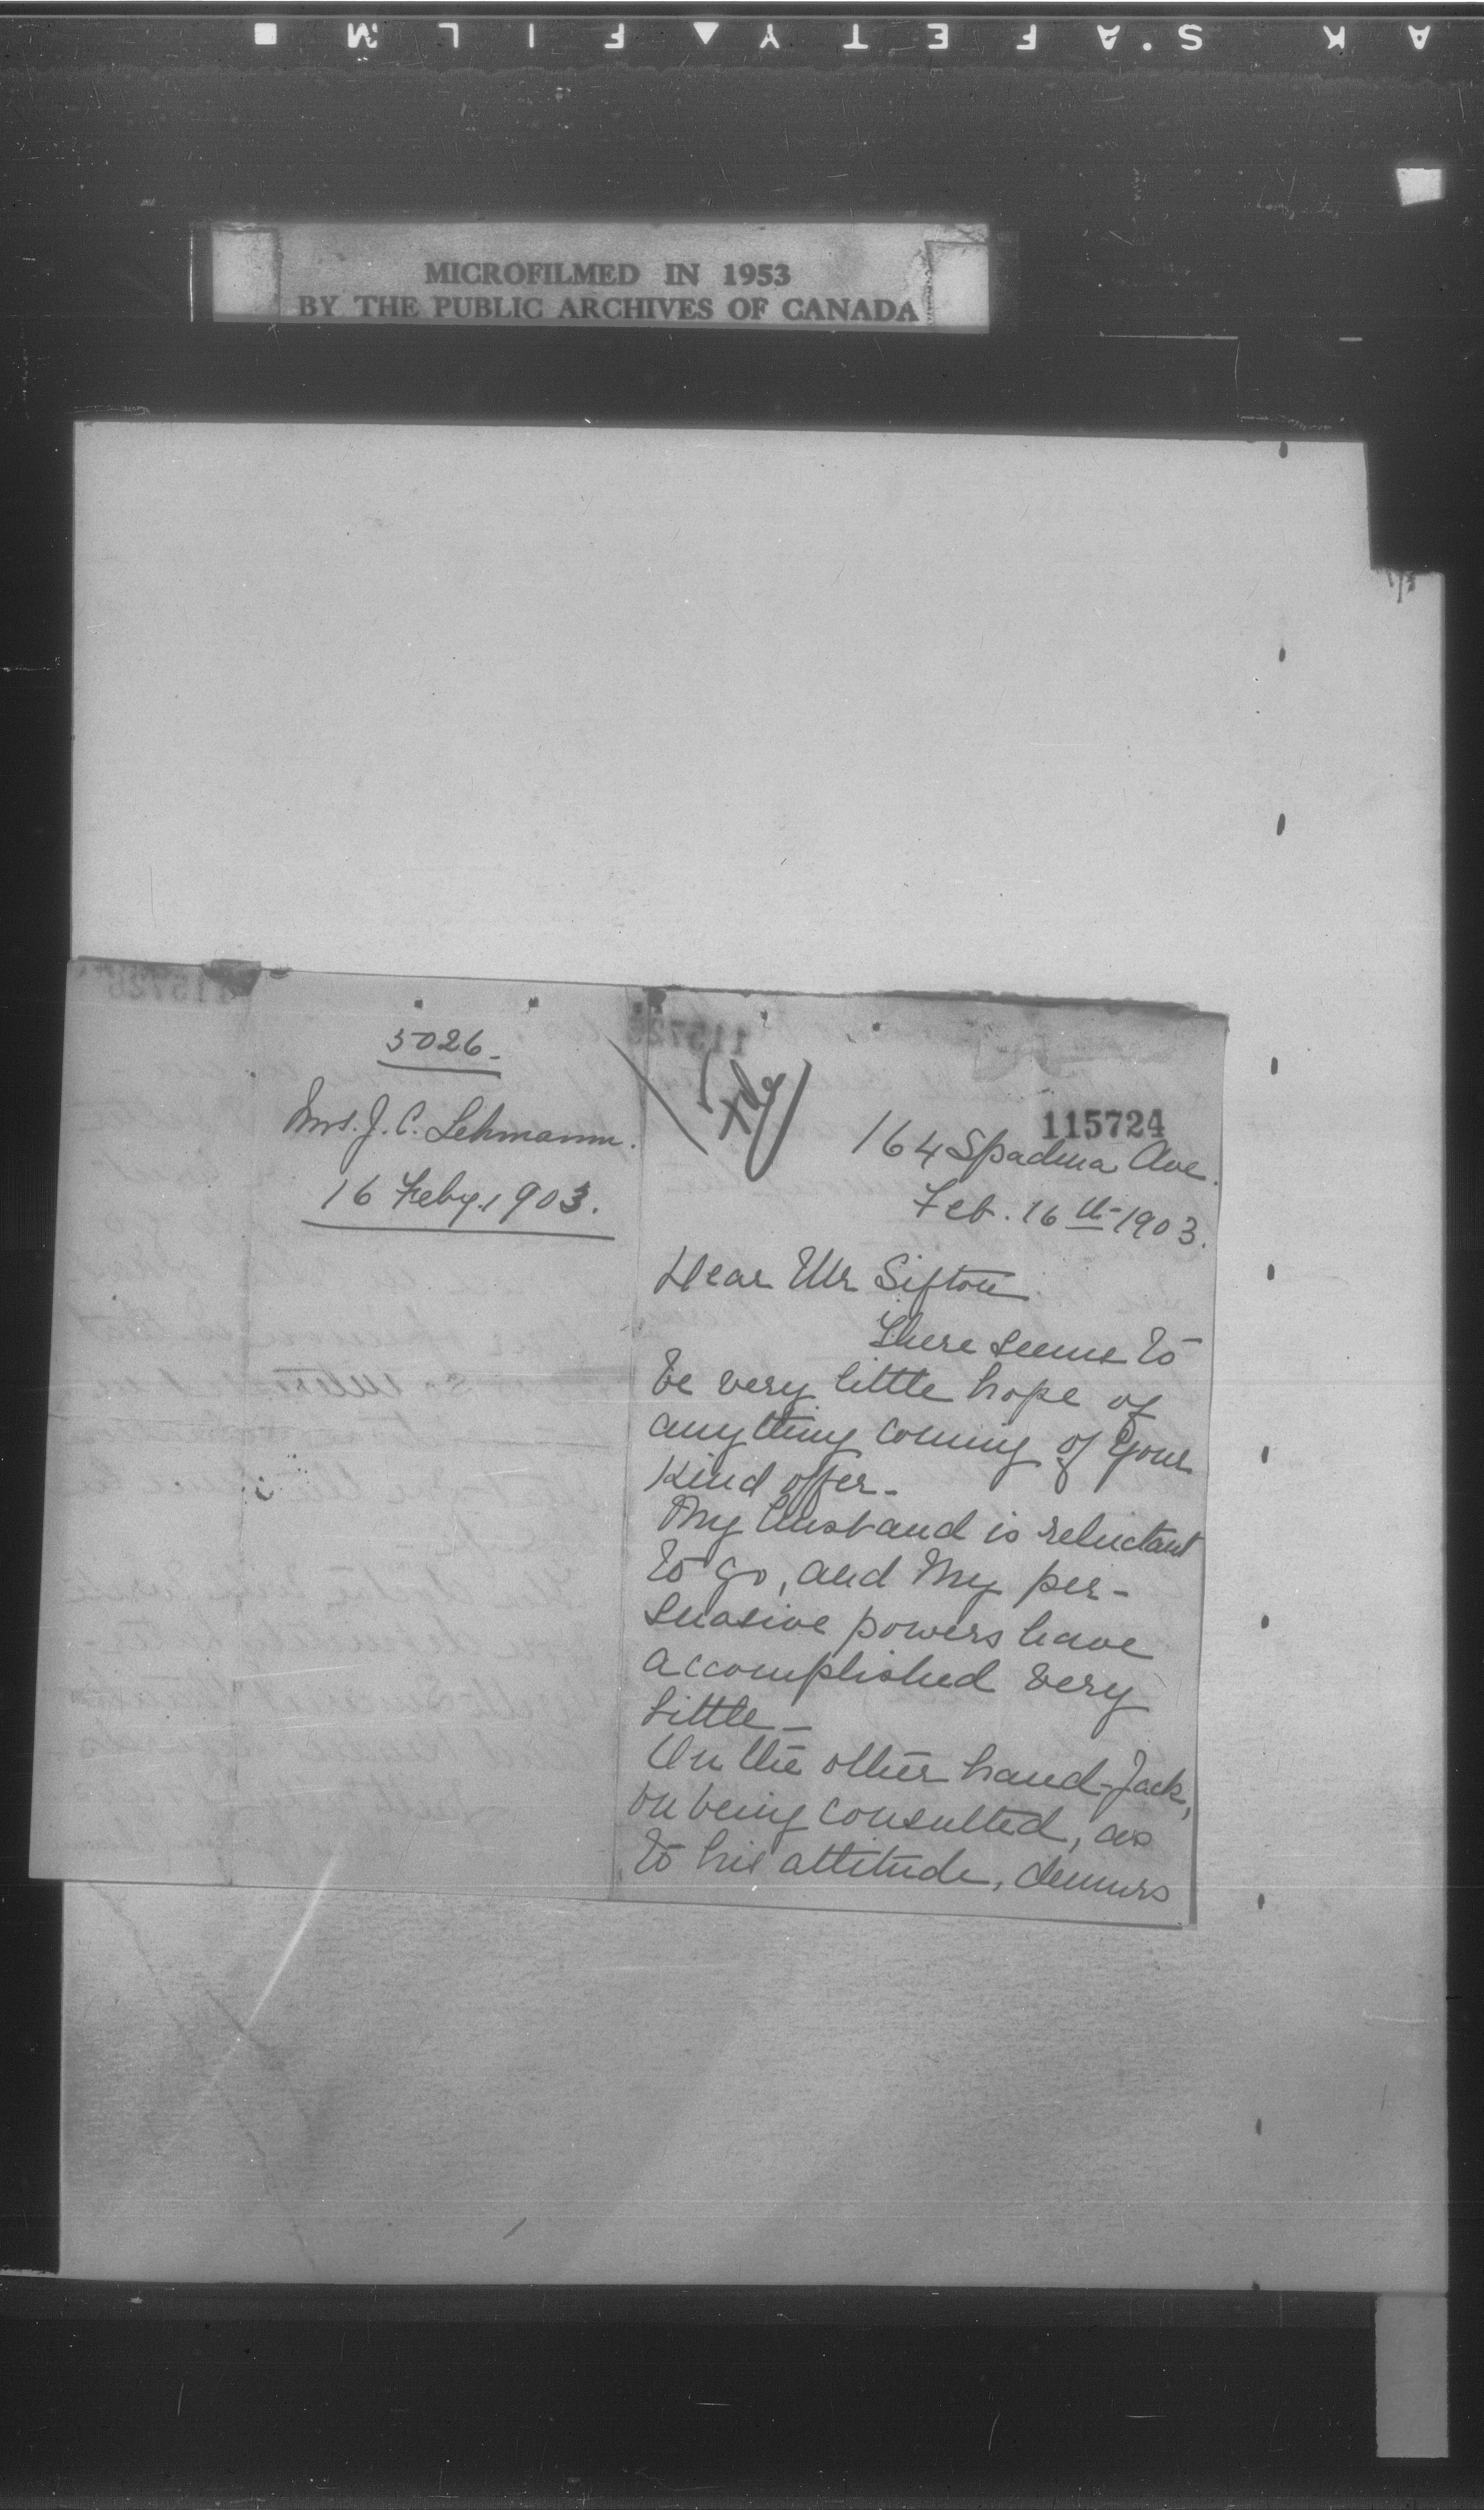 A K S.A F E T Y ▲ F I L M ■
MICROFILMED IN 1953
BY THE PUBLIC ARCHIVES OF CANADA
5026-
Mrs. J. C. Lehmann.
16 Feby. 1903.
115724
164 Spadina Ave.
Feb. 16th-1903.
Dear Mr Sifton
There seems to
be very little hope of
anything coming of your
kind offer-
My husband is reluctant
to go, and my per-
suasive powers have
accomplished very
little-
On the other hand-Jack,
on being consulted, as
to his attitude, demurs